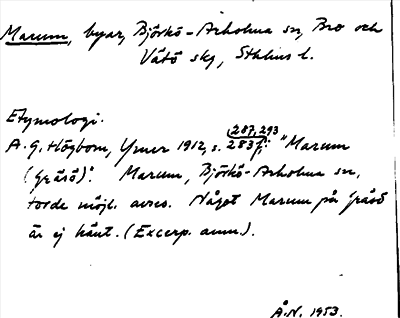 Marum, byar, Björkö-Arholma sn, Bro och
Vätö skg, Sthlms l.
Etymologi.
287, 293
A. G. Högbom, Ymer 1912, s. 283 f.: "Marum
(Gräsö)". Marum, Björkö-Arholma sn,
torde möjl. avses. Något Marum på Gräsö
är ej känt. (Excerp. anm.).
Å.N. 1953.